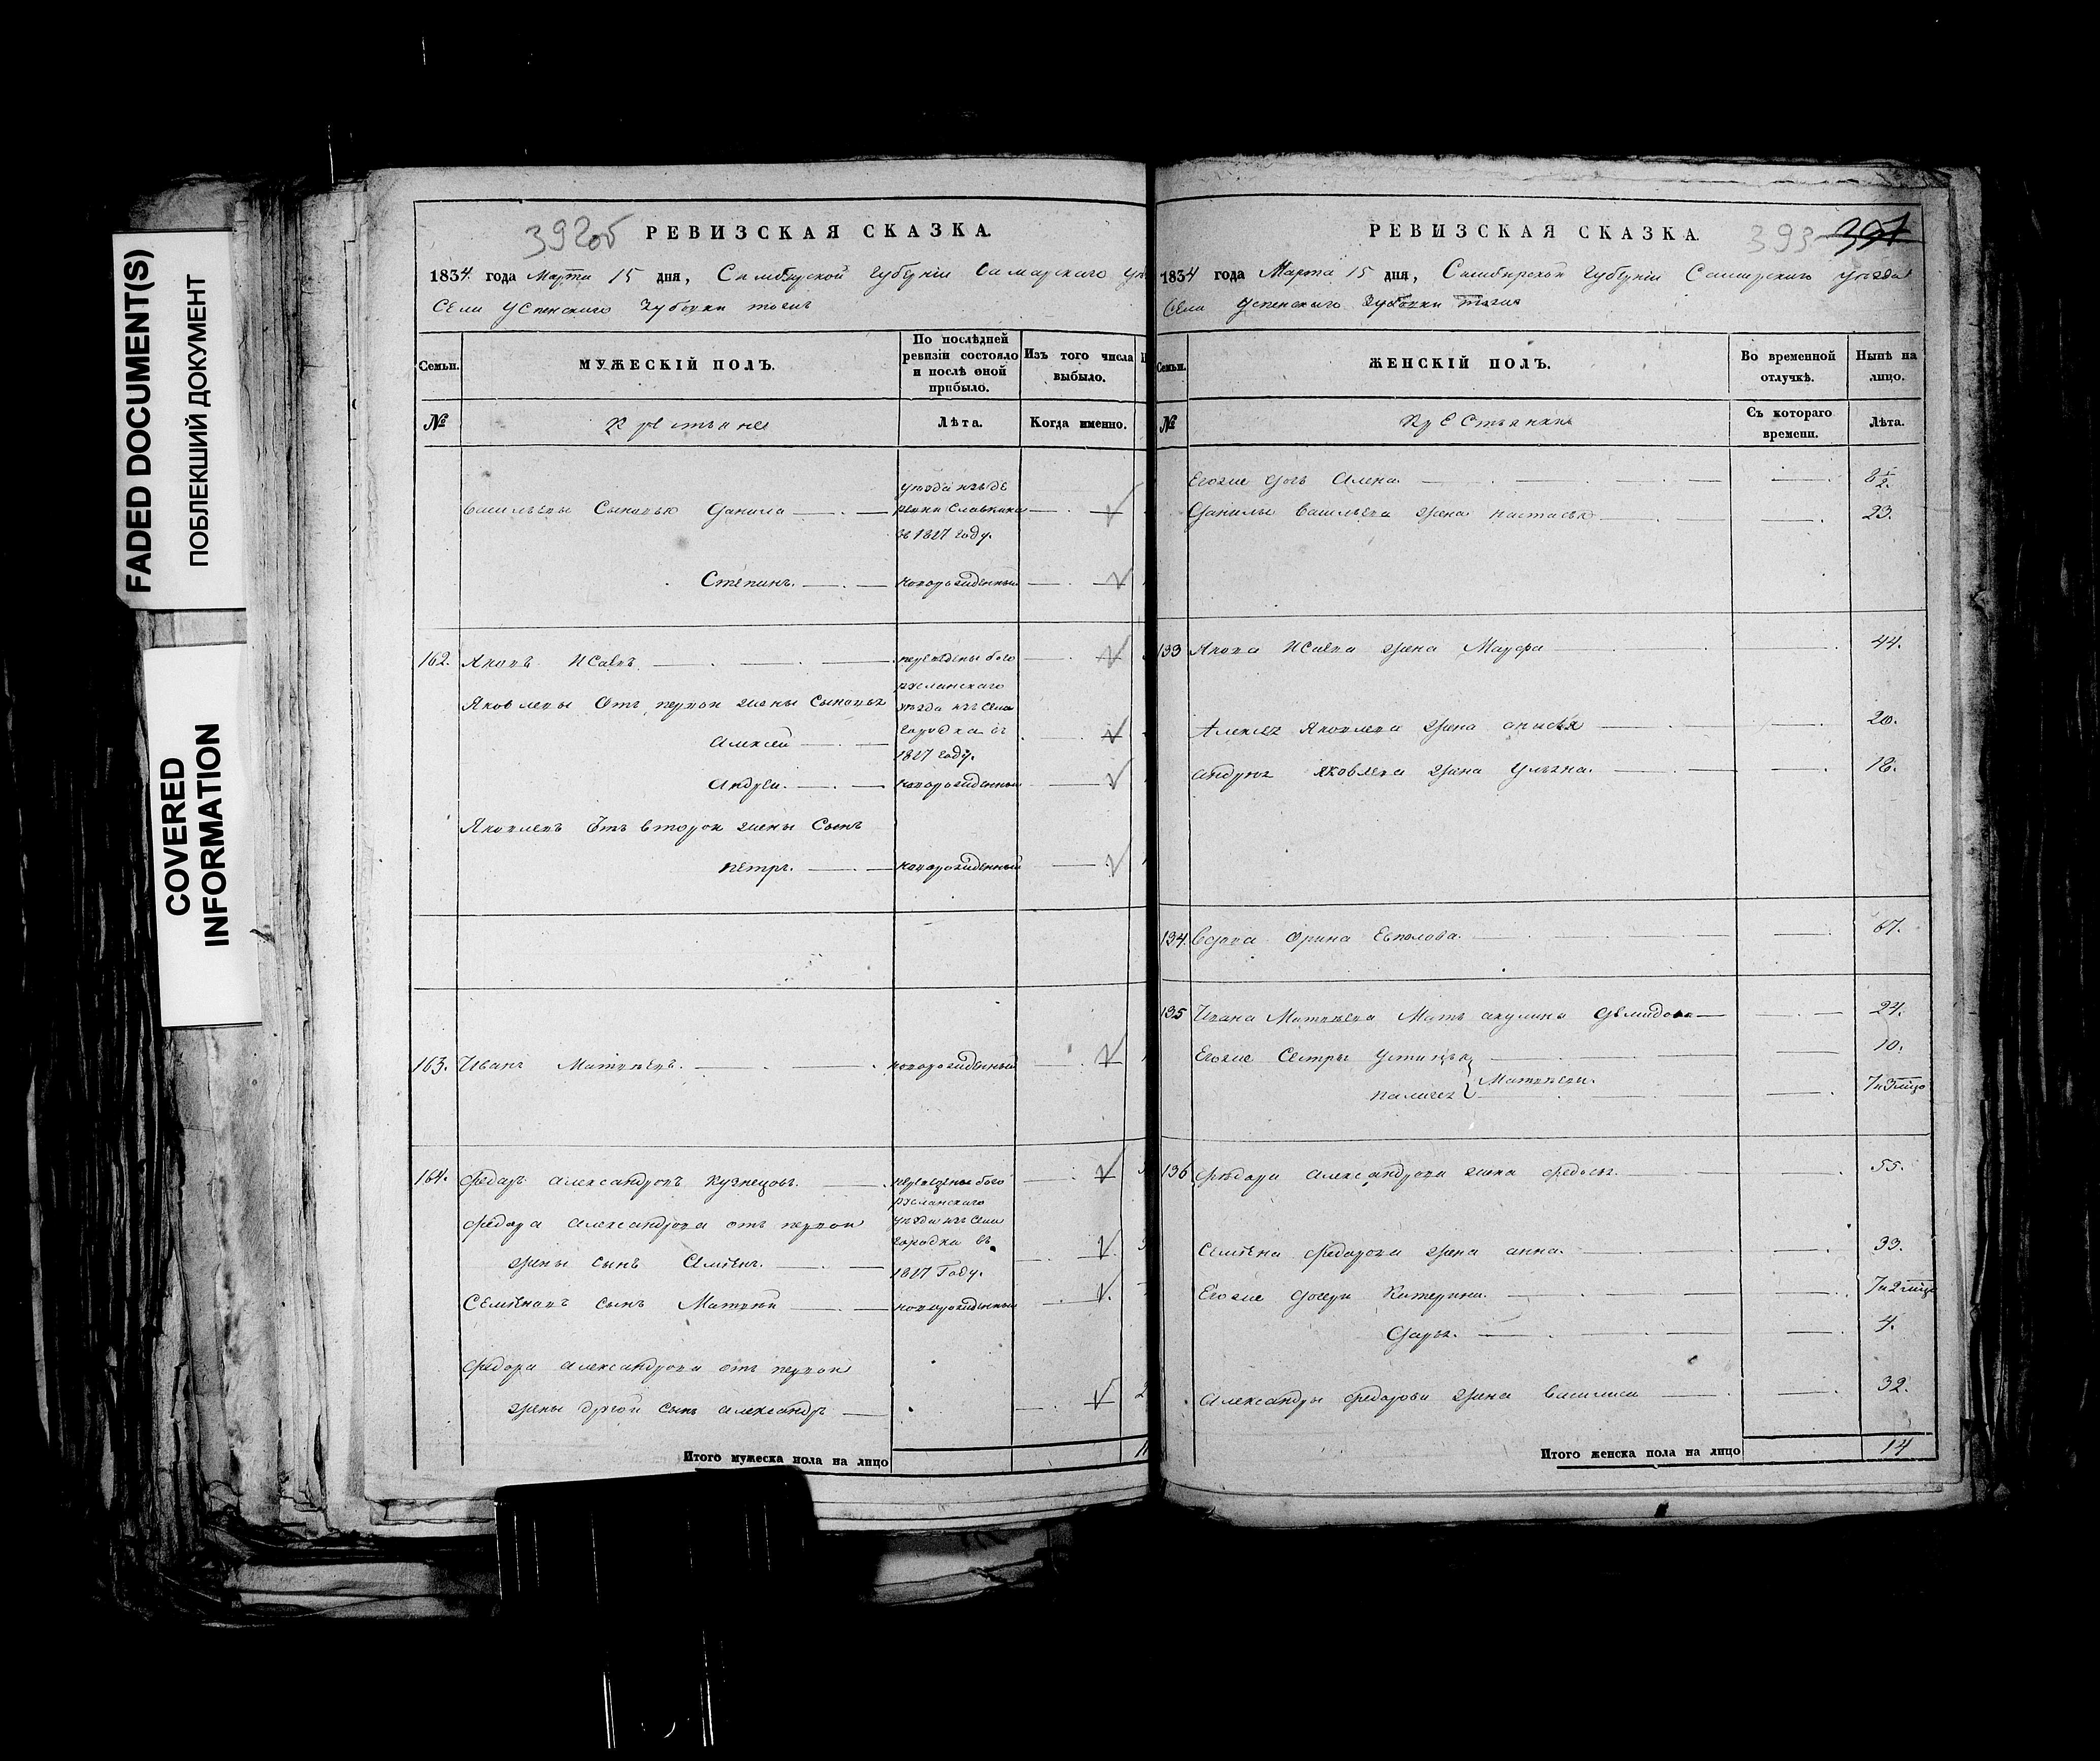 FADED DOCUMENT(S)
ПОБЛЕКШИЙ ДОКУМЕНТ
COVERED
INFORMATION
392об РЕВИЗСКАЯ СКАЗКА.
1834. года Марта 15 дня, Симбирской губернии Самарского
Села Успенского Зубовки тожъ
Семьи. МУЖЕСКІЙ ПОЛЪ. По послѣдней ревизіи состояло и послѣ оной прибыло. Изъ того числа выбыло.
№ Крестьяне Лѣта. Когда именно.
уѣзда изъ де
Васильевы Сыновья Данила ревни Славкина
въ 1827 году.
Степанъ. новорожденный
162. Яковъ Исаевъ переведены бого
русланскаго
Яковлевы Отъ первой жены Сыновья уѣзда изъ Села
городка въ
Алексей 1827 году.
Андрей. новорожденный
Яковлевъ Отъ второй жены Сынъ
Петръ. новорожденный
163. Иванъ Матвѣевъ. новорожденный
164. Федоръ Александровъ Кузнецовъ. переведены бого
русланскаго
Федора Александрова отъ первой уѣзда изъ Села
городка въ
жены сынъ Семіонъ. 1827 Году.
Семіоновъ сынъ Матвѣй новорожденный
Федора Александрова отъ первой
жены другой сынъ Александръ
Итого мужеска пола на лицо
РЕВИЗСКАЯ СКАЗКА. 393 391
1834 года Марта 15 дня, Симбирской губерніи Самарскаго уѣзда
Села Успенскаго Зубовки тожъ
Семьи. ЖЕНСКІЙ ПОЛЪ. Во временной отлучкѣ. Нынѣ на лицо.
№ Крестьянки Съ котораго времени. Лѣта.
Егоже дочь Алена. 8 1/2.
Данилы Васильева жена Настасья 23.
133 Якова Исаева жена Марфа 44.
Алексея Яковлева жена Анисья 20.
Андрея Яковлева жена Ульяна. 18.
134. Вдова Орина 67.
135 Ивана Матвѣева Мать Акулина Демидова 24.
Егоже Сестры Устинья 10.
Матвѣевы.
Палагея 7 и 3 мѣся
136 Федора Александрова жена Федосья. 55.
Семіона Федорова жена Анна. 33.
Егоже дочери Катерина. 7 и 2 мѣся
Дарья. 4.
Александры Федорова жена Василиса 32.
Итого женска пола на лицо 14